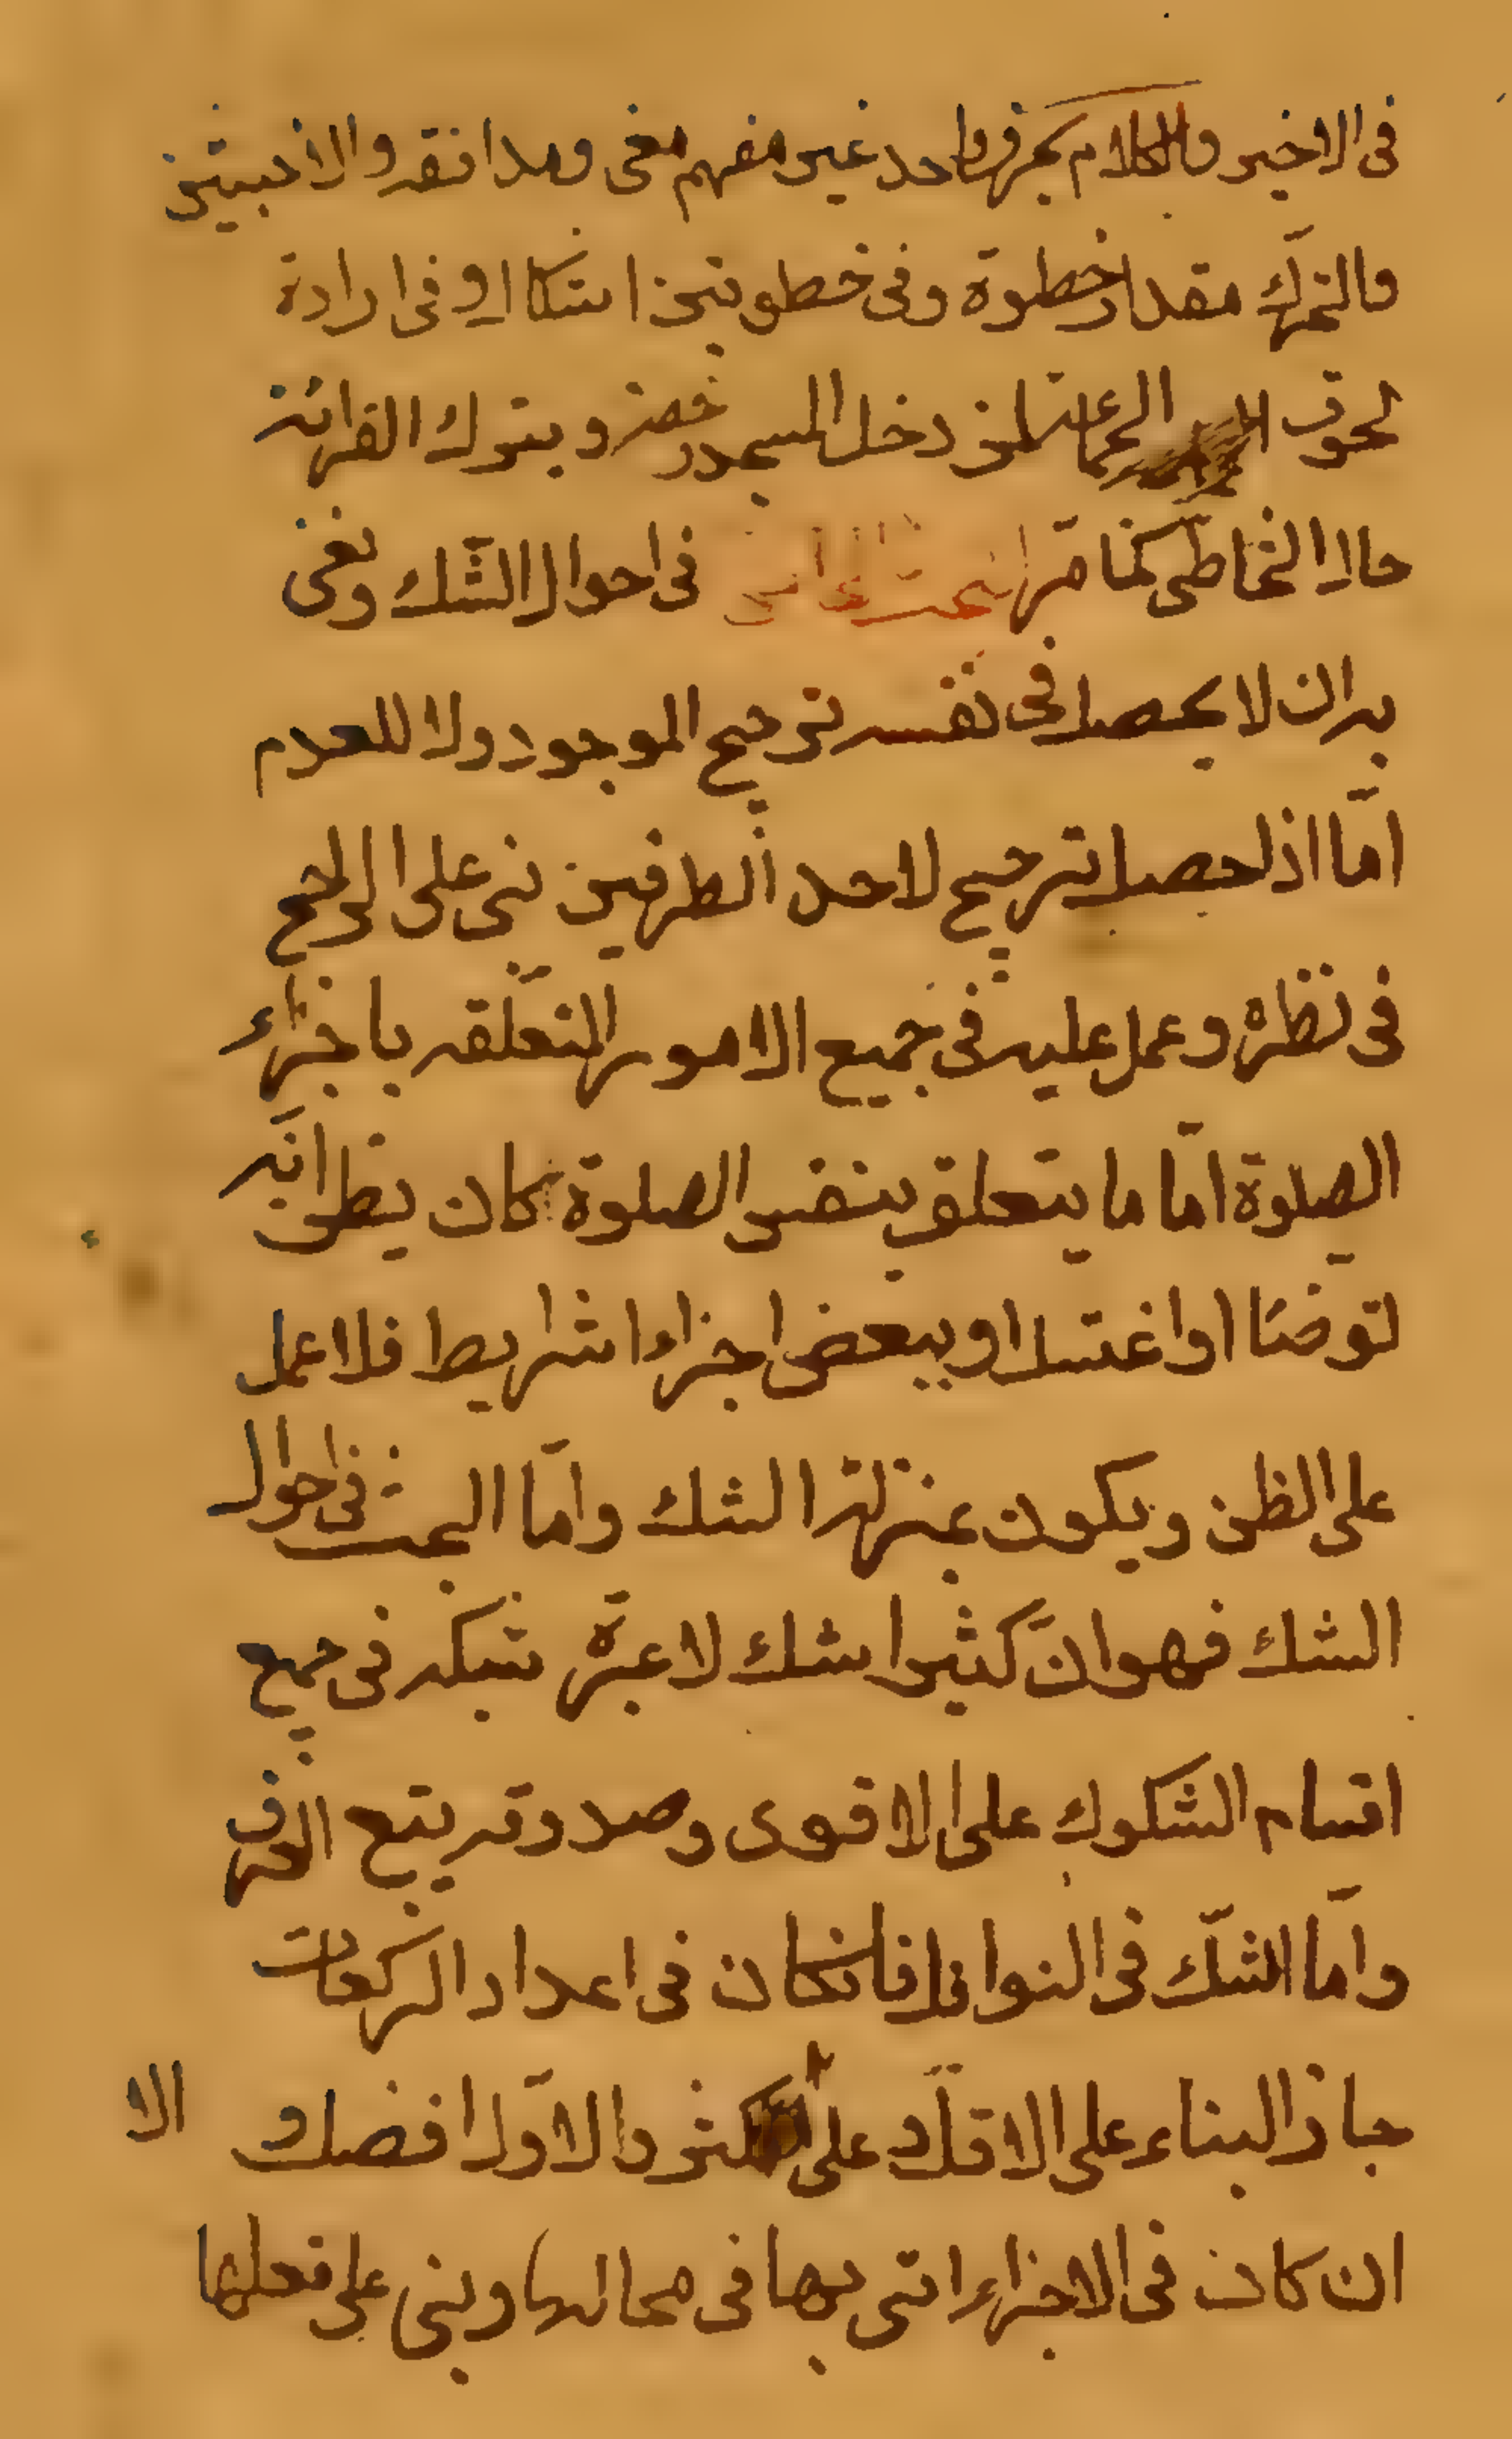 فى الاخير والكلام بحرف واحد غير مفهم معنى ومدافقه والاخبيثين
والتحرك مقدار خطوة وفى خطوتين اشكال او فى ارادة
لحوق الجماعة لمن دخل المسجد رخصة و بترك القرائة
حال التخاطى كما مر البحث الخامس فى احوال الشك ونعنى
به ان لا يحصل فى نفسه ترجيح الموجود ولا للعدم
امّا اذا حصل ترجيح لاحد الطرفين بنى على الراجح
فى نظره وعمل عليه فى جميع الامور المتعلقه باجزاء
الصلوة امّا ما يتعلق بنفس الصلوة كان يظن انّه
توضئا او اغتسل او ببعض اجزاء شرايط فلا عمل
على الظن ويكون بمنزلة الشك وامّا البحث فى احوال
الشك فهو انّ كثير الشك لا عبرة بشكه فى جميع
اقسام الشكوك على الاقوى وصدوقه يتبع العرف
وامّا الشّك فى النوافل فانكان فى اعداد الركعات
جاز البناء على الاقل و على الاكثر و الاوّل افضل و الا
ان كان فى الاجزاء اتى بها فى محالها وبنى على فعلها